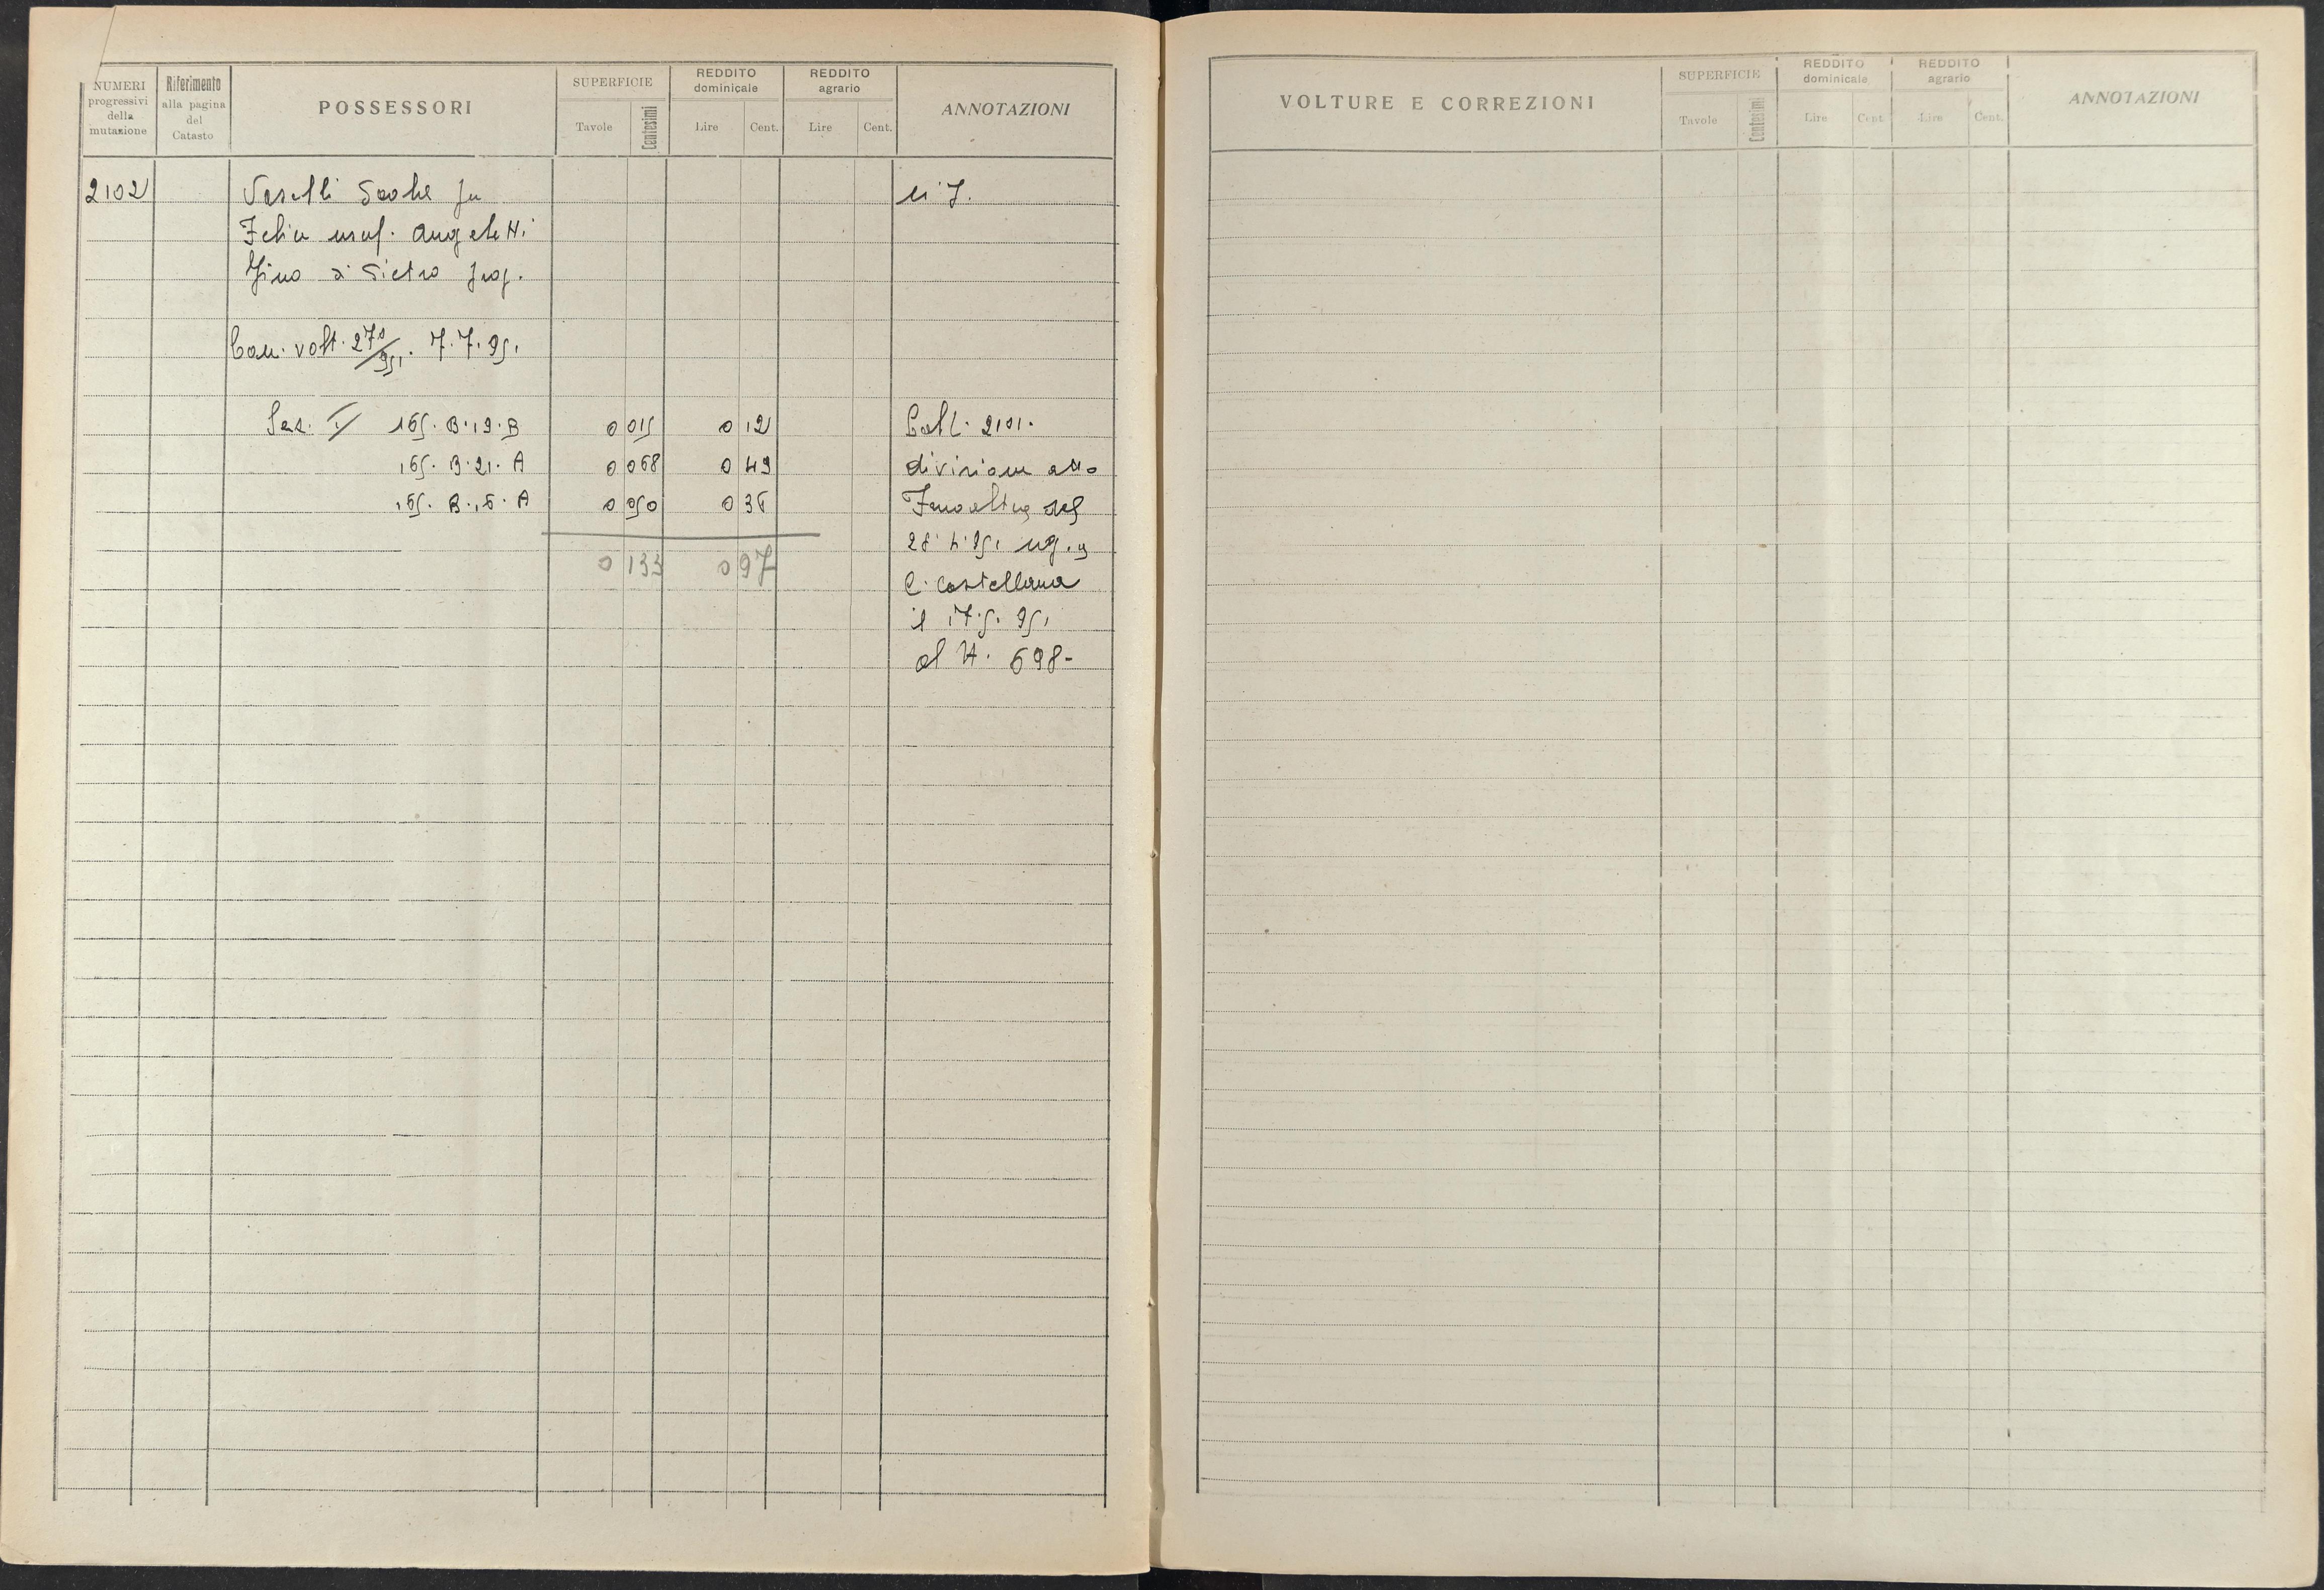 NUMERI progressivi della mutazione
Riferimento alla pagina del Catasto
POSSESSORI
SUPERFICIE
Tavole
Centesimi
REDDITO dominicale
Lire
Cent.
REDDITO agrario
Lire
Cent.
ANNOTAZIONI
2102
Vaselli Paolo fu
Felice usuf. Angeletti
Gino di Pietro prop.
Cau. volt. 270/951. 7.7.951
Sez. I 165. B. 19. B 0 015 0 12
165. B. 21. A 0 068 0 49
165. B. 16. A 0 050 0 36
0 133 0 97
Coll. 2101.
divisione atto
del
28.4.951 reg. a
C. Castellana
il 17.5.951
al N. 698-
VOLTURE E CORREZIONI
SUPERFICIE
Tavole
Centesimi
REDDITO dominicale
Lire
Cent.
REDDITO agrario
Lire
Cent.
ANNOTAZIONI